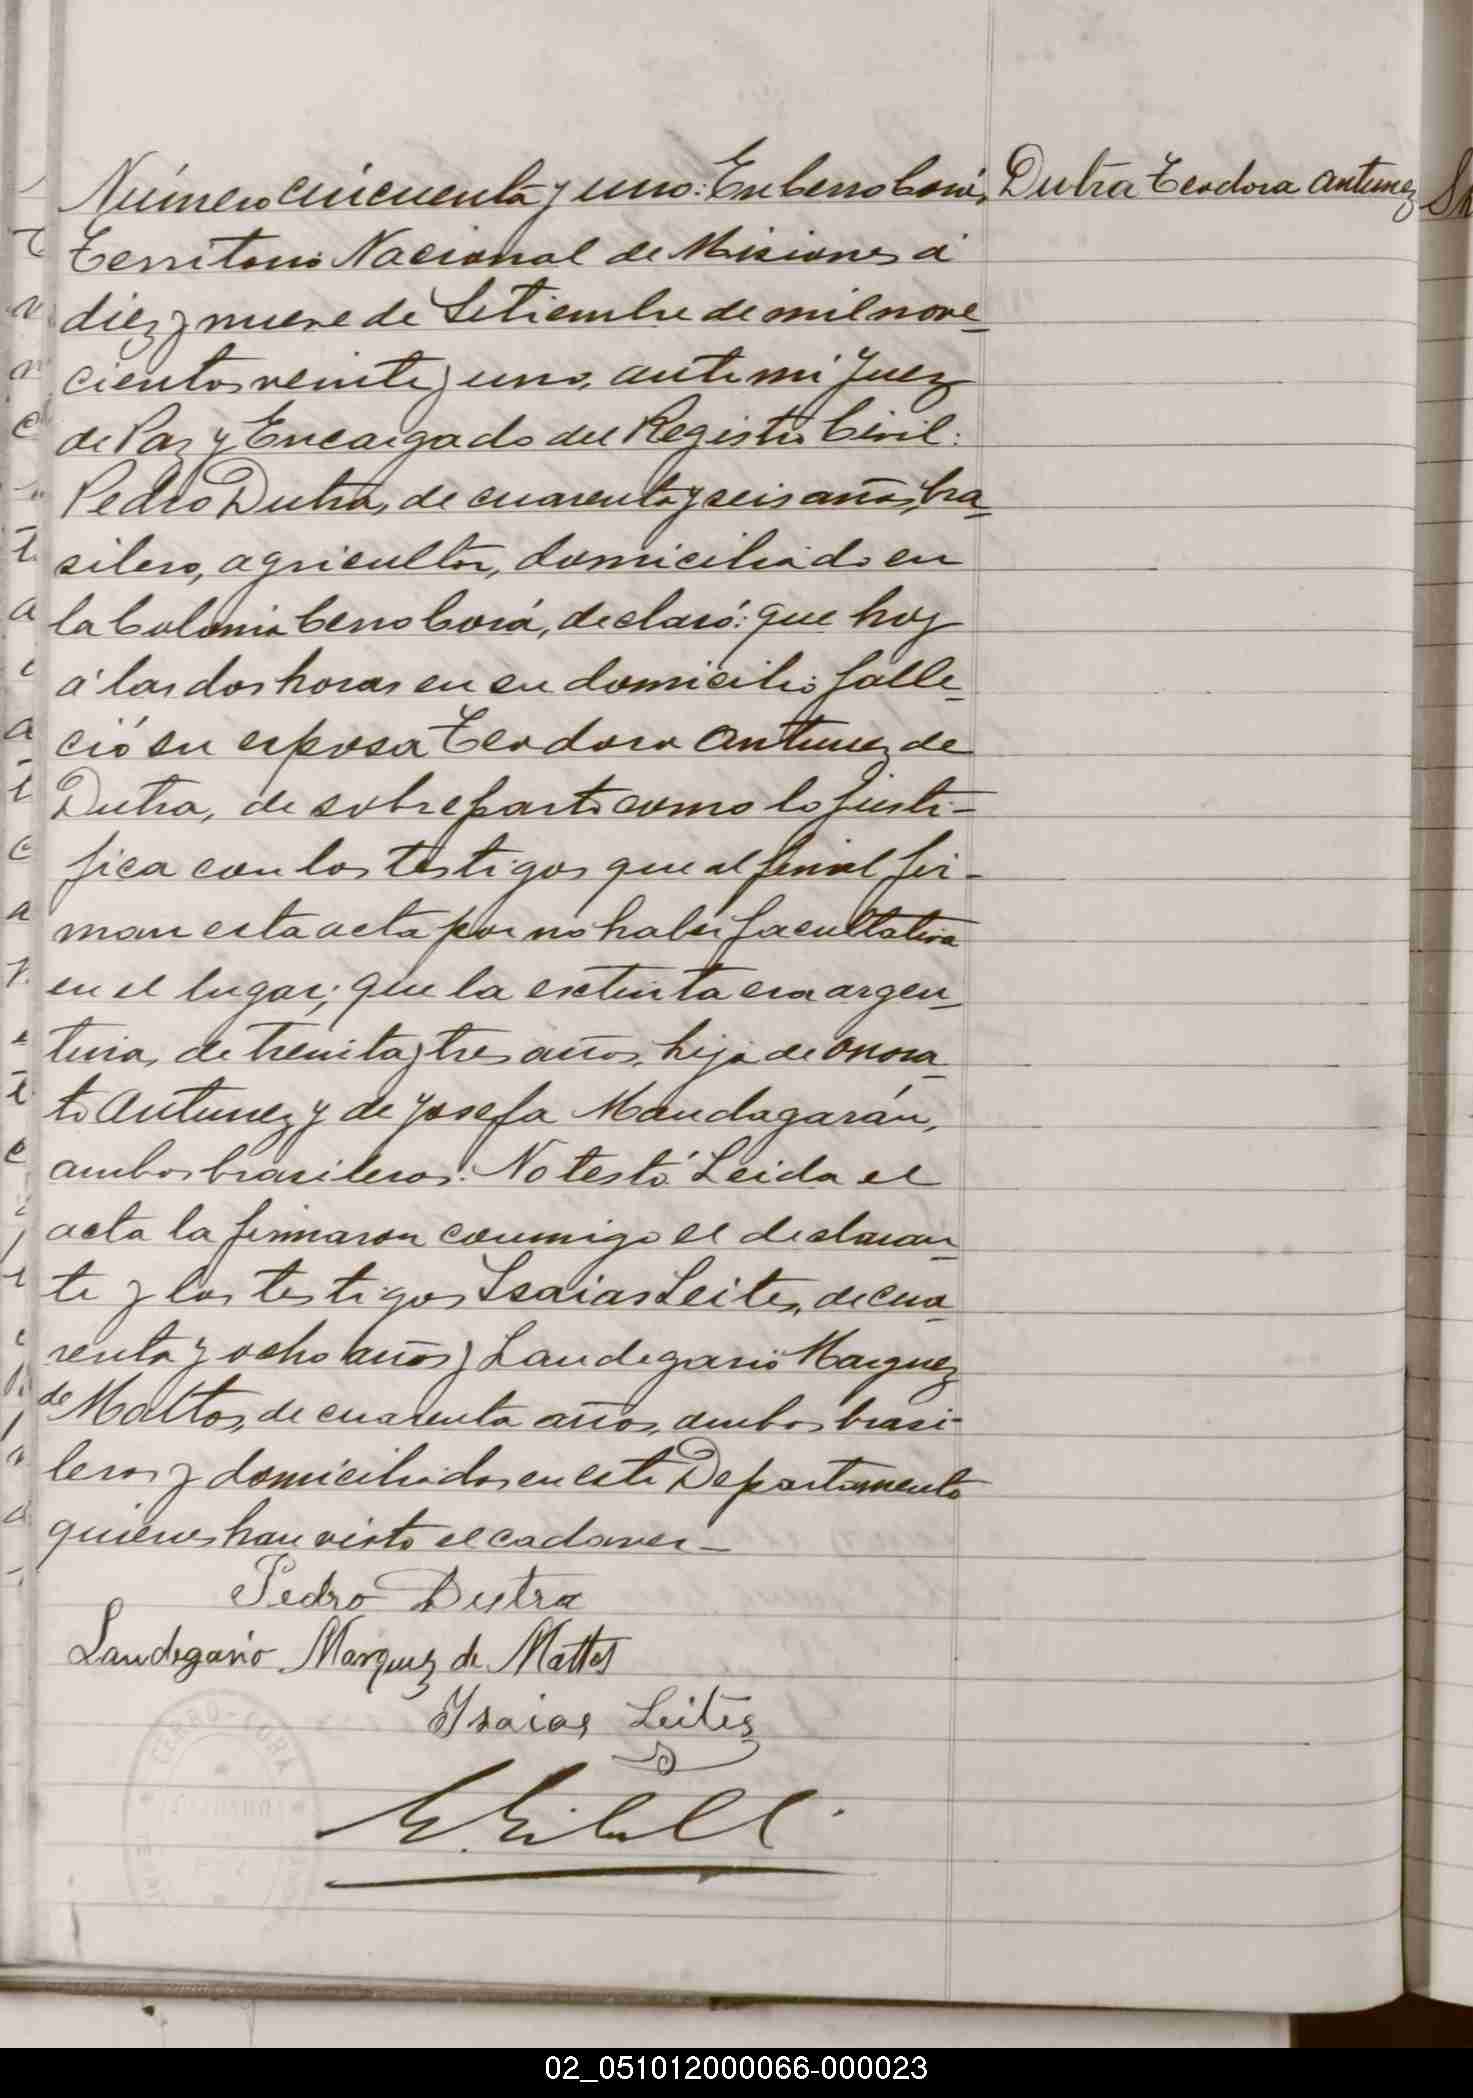 Número cincuenta y uno: En Cerro Corá, Dutra Teodora Antunez
Territorio Nacional de Misiones á
diez y nueve de Setiembre de mil nove-
cientos veinte y uno, ante mi Juez
de Paz y Encargado del Registro Civil:
Pedro Dutra, de cuarenta y seis años, bra-
silero, agricultor, domiciliado en
la Colonia Cerro Corá, declaró: que hoy
á las dos horas en su domicilio falle-
ció su esposa Teodora Antunez de
Dutra, de sobreparto como lo justi-
fica con los testigos que al final fir-
man esta acta por no haber facultativo
en el lugar; que la extinta era argen-
tina, de treinta y tres años, hija de Onora-
to Antunez y de Josefa Mandagarán,
ambos brasileros. No testó. Leida el
acta la firmaron conmigo el declaran-
te y los testigos Isaias Leites, de cua-
renta y ocho años y Laudegario Marquez
de Mattos, de cuarenta años, ambos brasi-
leros y domiciliados en este Departamento
quienes han visto el cadaver—
Pedro Dutra
Laudegario Marquez de Mattos
Isaias Leites
CERRO-CORA
02_051012000066-000023